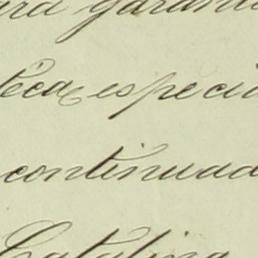 ra garan
teca especia
continuad
Catalina